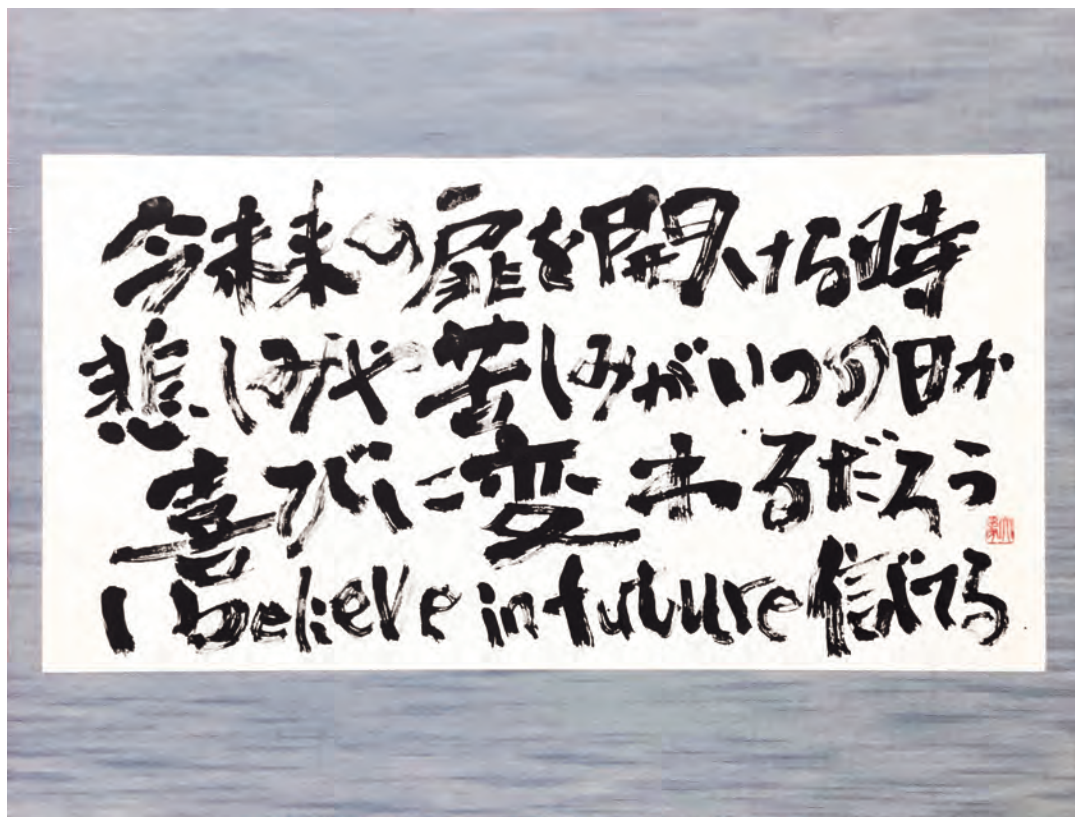 今未来の扉を開ける時
悲しみや苦しみがいつの日か
喜びに変わるだろう
I believe in future 信じてる